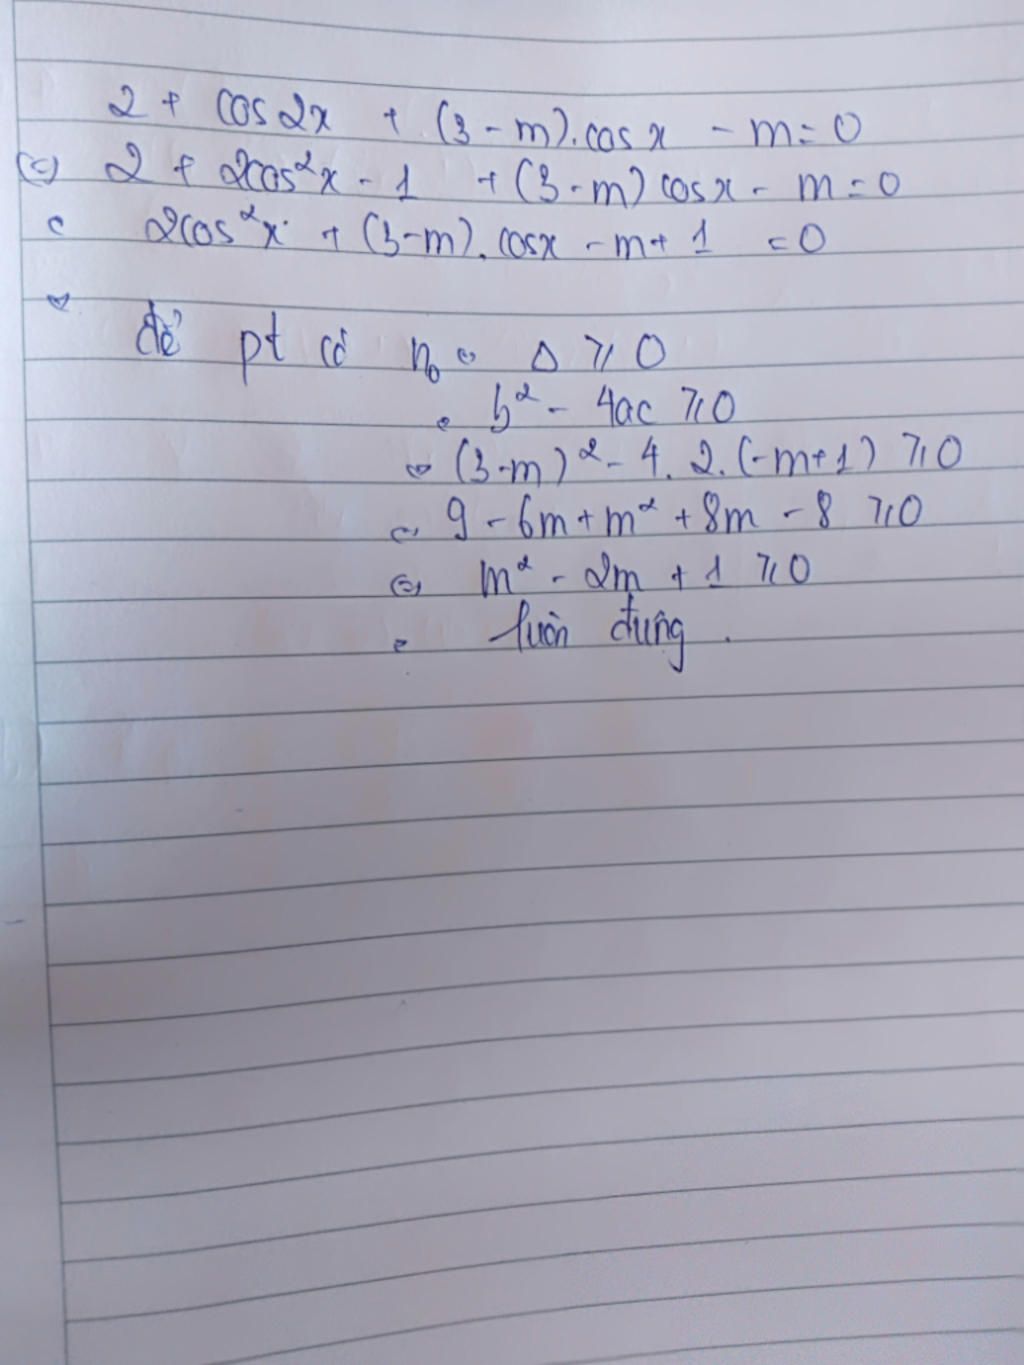 2 + cos 2x + (3 - m).cos x - m = 0
(=) 2 + 2cos²x - 1 + (3 - m) cosx - m = 0
2cos²x + (3-m). cosx - m + 1 = 0
để pt có n₀ ⇔ Δ ≥ 0
b² - 4ac ≥ 0
⇔ (3-m)² - 4. 2. (-m+1) ≥ 0
⇔ 9 - 6m + m² + 8m - 8 ≥ 0
⇔ m² - 2m + 1 ≥ 0
luôn đúng.